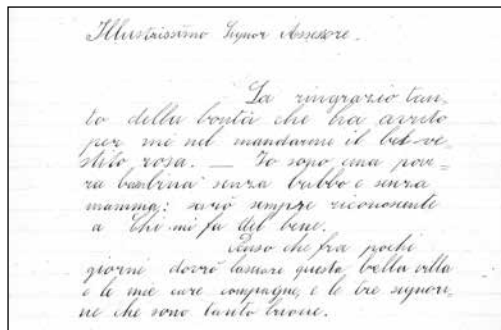 Illustrissimo Signor Assessore.
La ringrazio tan-
to della bontà che ha avuto
per me nel mandarmi il bel ve-
stito rosa. — Io sono una pove-
ra bambina senza babbo e senza
mamma; sarò sempre riconoscente
a Chi mi fa del bene.
Penso che fra pochi
giorni dovrò lasciare questa bella villa
e le mie care compagne, e le tre signori-
ne che sono tanto buone.